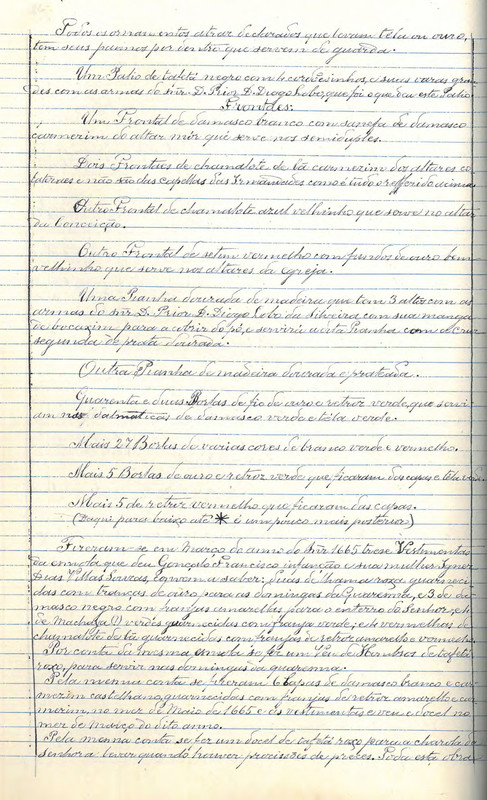 Todos os ornamentos atraz declarados que levam téla ou ouro,
tem seus pannos por dentro que servem de guarda.
Um Palio de tafetá negro com cordõesinhos, e suas varas gran
des com as armas do Snr. D. Prior D. Diogo Lobo, que foi o que deu este Palio.
Frontaes:
Um Frontal de damasco branco com sanefa de damasco
carmezim do altar mór que serve nos semiduples.
Dois Frontaes de chamalote de lã carmezim dos altares co
lateraes e não são das capellas das Irmandades como é tudo o refferido acima.
Outro Frontal de chamalote azul velhinho que serve no altar
da Conceição.
Outro Frontal de setim vermelho com fundos de ouro bem
velhinho que serve nos altares da Egreja.
Uma Pianha dourada de madeira que tem 3 altos com as
armas do Snr. D. Prior D. Diogo Lobo da Silveira com sua manga
de bocaxim para a cobrir do pó, e servirá a esta Pianha com a Cruz
segunda de prata dourada.
Outra Pianha de madeira dourada e prateada.
Quarenta e duas Borlas de fio de ouro e retroz verde, que servi
am nas dalmaticas de damasco verde e téla verde.
Mais 27 Borlas de varias cores de branco verde e vermelho.
Mais 5 Borlas de ouro e retroz verde que ficaram das capas e téla verde.
Mais 5 de retroz vermelho que ficaram das capas.
(Daqui para baixo até * é um pouco mais posterior)
Fizeram-se em Março do anno do Snr. 1665 treze Vestimentas
da esmola que deu Gonçalo Francisco infanção e sua mulher Ignez
Dias Villas Louzas, convem a saber: duas de chama roxa guarneci
das com tranças de ouro para as domingas da Quaresma, e 3 de da
masco negro com franjas amarellas para o enterro do Senhor, e 4
de (?) verdes guarnecidas com franja verde, e 4 vermelhas de
chamalote de lã guarnecidas com franjas de retroz amarello e vermelho.
Por conta da mesma esmola se fez um Véo de Hombros de tafetá
roxo, para servir nas domingas da quaresma.
Pela mesma conta se fizeram 6 Capas de damasco branco e car
mezim castelhano guarnecidas com franjas de retroz amarello e car
mezim, no mez de Maio de 1665 e as vestimentas e veu e docel no
mez de Março do dito anno.
Pela mesma conta se fez um docel de tafetá roxo para a charola de
senhora levar quando houver procissão de préces. Toda esta obra